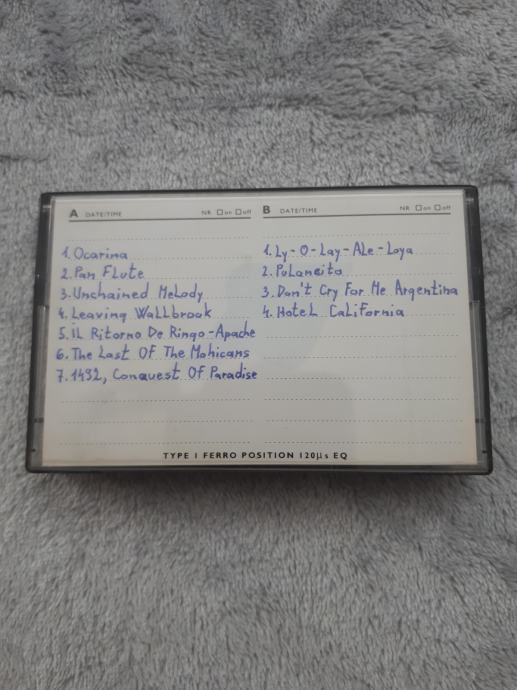 A DATE/TIME NR on off
1. Ocarina
2. Pan Flute
3. Unchained Melody
4. Leaving Wallbrook
5. IL Ritorno De Ringo - Apache
6. The Last Of The Mohicans
7. 1492, Conquest Of Paradise
B DATE/TIME NR on off
1. Ly-O-Lay-Ale-Loya
2. PoLoneito
3. Don't Cry For Me Argentina
4. HoteL CaliFornia
TYPE I FERRO POSITION 120µs EQ